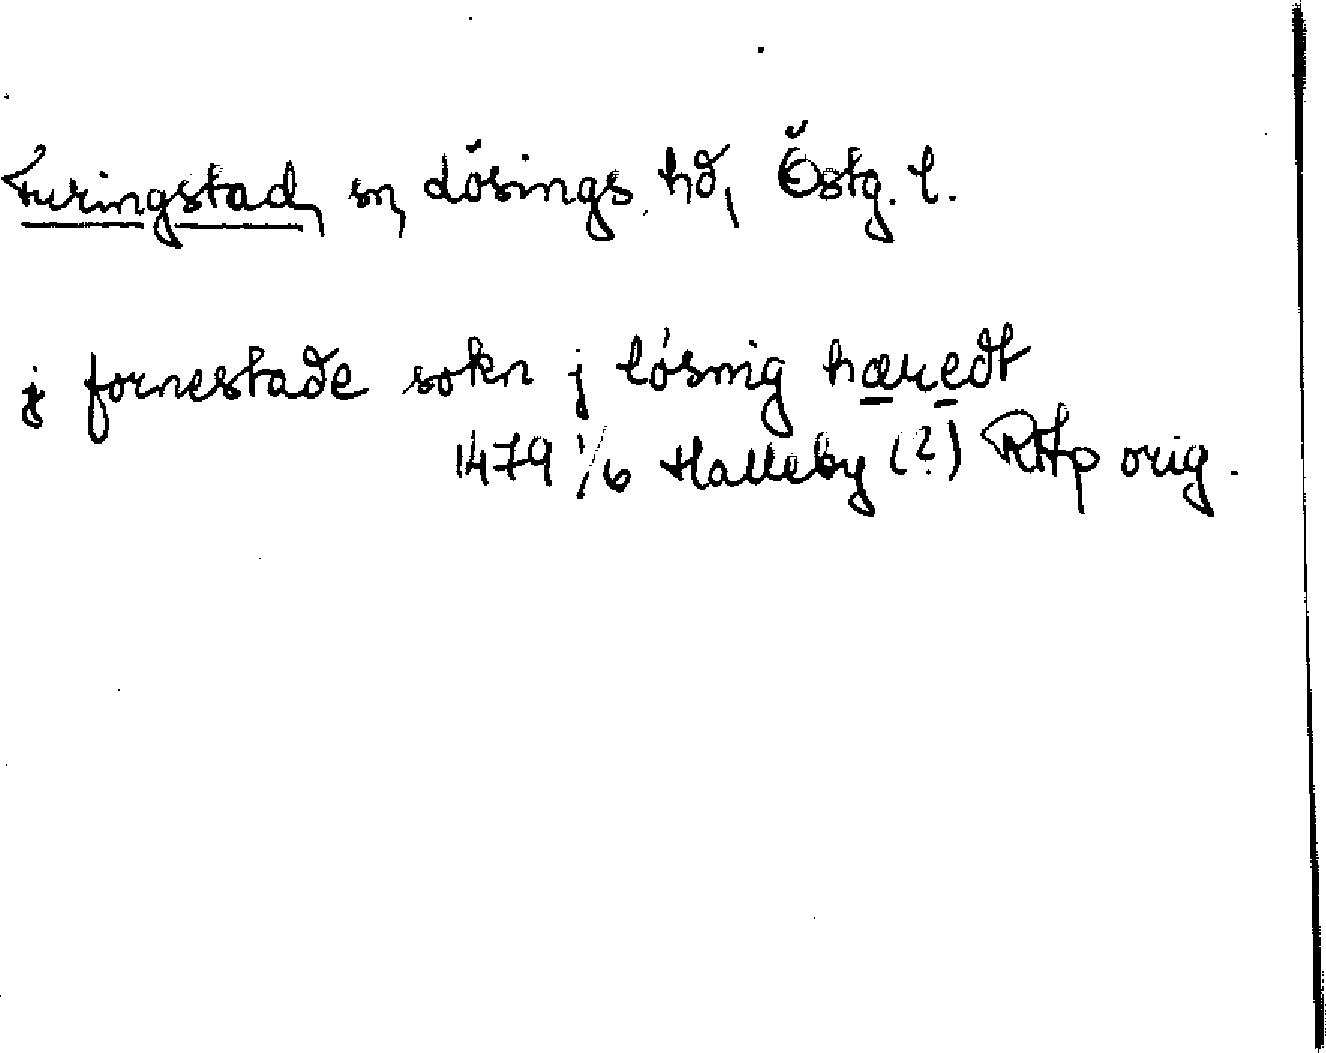 Furingstad, sn, Lösings hd, Östg. l.
j fornestade sokn j lösnig hæredt
1479 1/6 Halleby (?) RAp orig.